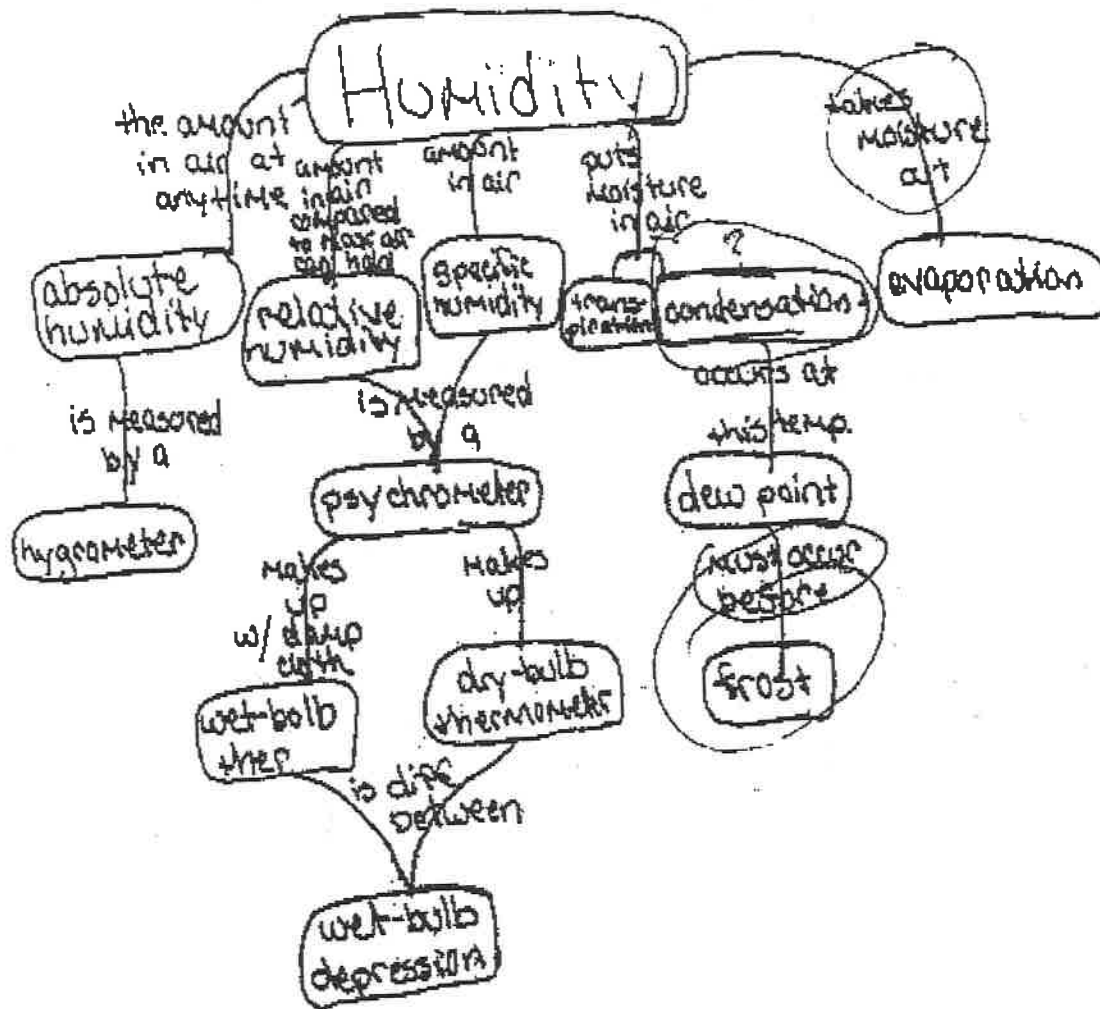 Humidity
the amount
in air at
anytime
amount
in air
compared
to max air
can hold
amount
in air
puts
moisture
in air
takes
moisture
out
absolute
humidity
relative
humidity
specific
humidity
trans-
piration
?
condensation
evaporation
is measured
by a
is measured
by a
occurs at
this temp.
hygrometer
psychrometer
dew point
makes
up
w/ damp
cloth
makes
up
must occur
before
wet-bulb
ther
dry-bulb
thermometr
frost
is diff
between
wet-bulb
depression